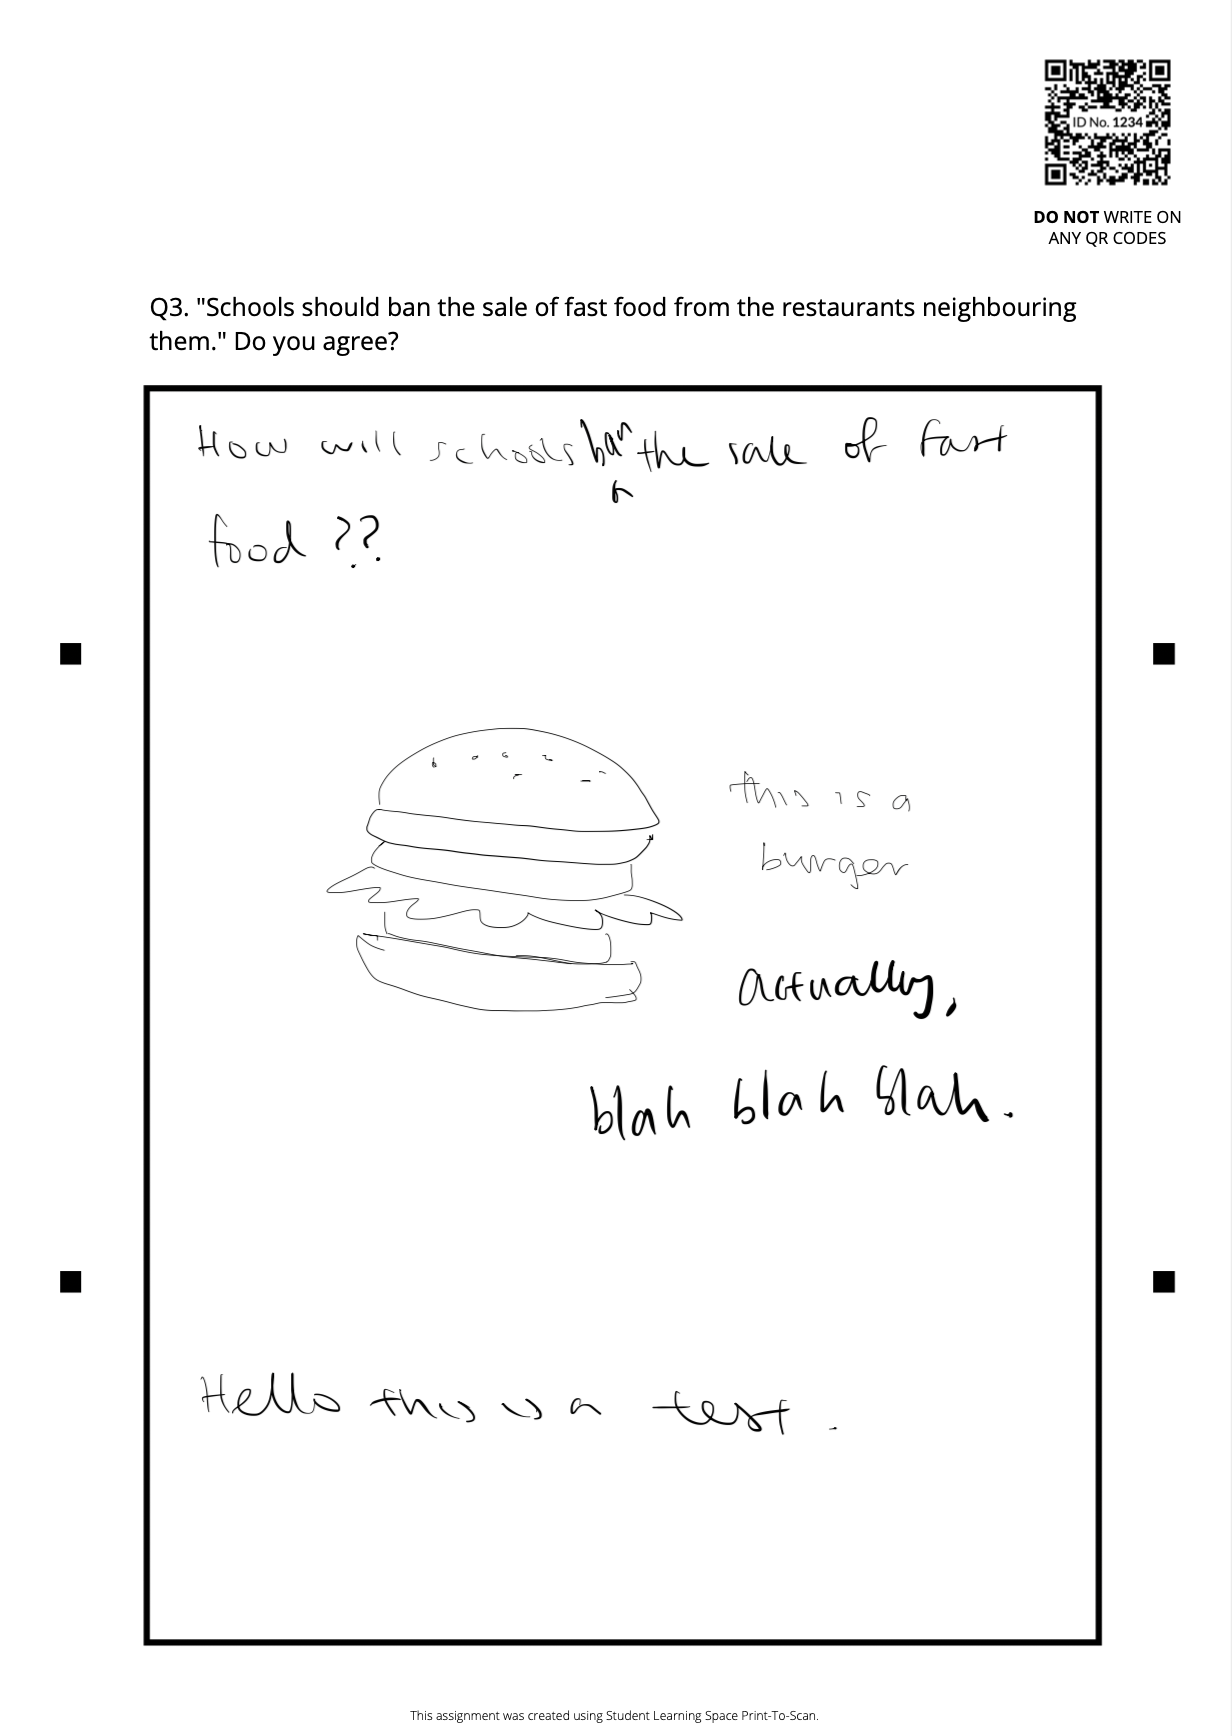 ID No. 1234
DO NOT WRITE ON
ANY QR CODES
Q3. "Schools should ban the sale of fast food from the restaurants neighbouring
them." Do you agree?
How will schools ban the sale of fast
food ??
this is a
burger
Actually,
blah blah blah.
Hello this is a test.
This assignment was created using Student Learning Space Print-To-Scan.